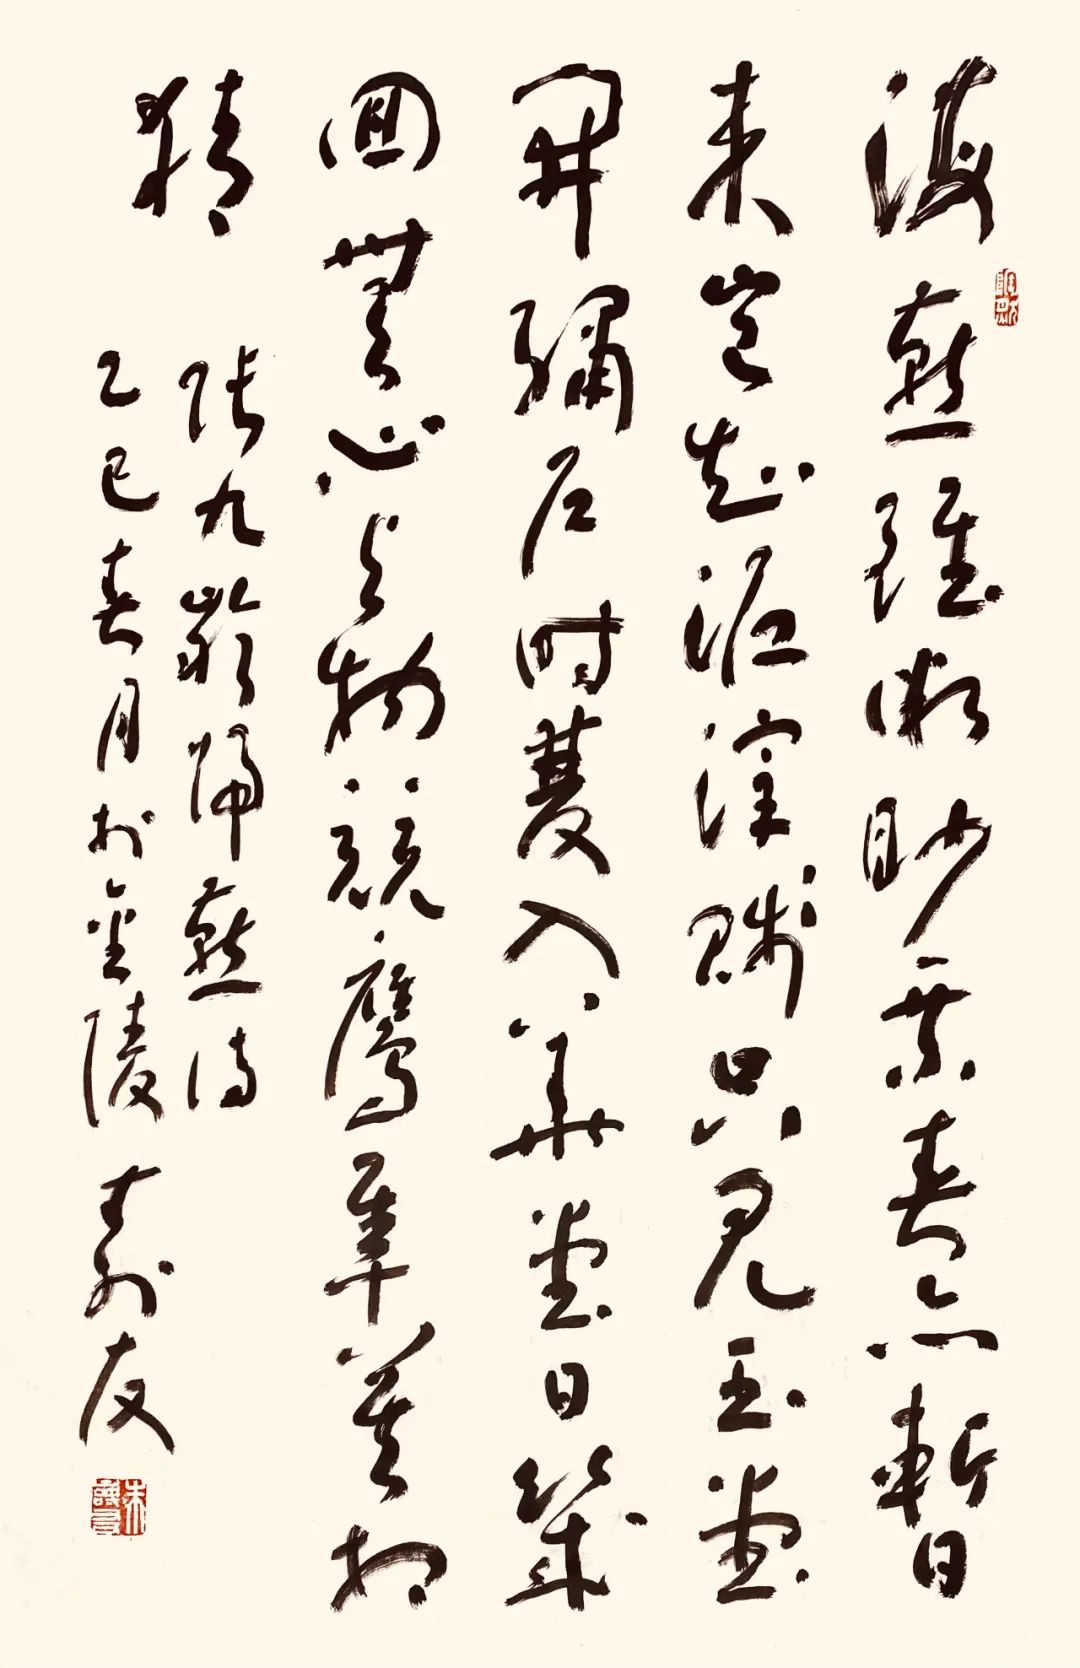 海燕雖微眇乘春亦暫
来豈知泥滓賤只見玉堂
開繡戶時雙入華堂日幾
回無心與物競鷹隼莫相
猜
張九齡歸燕詩
乙巳春月於金陵壽友